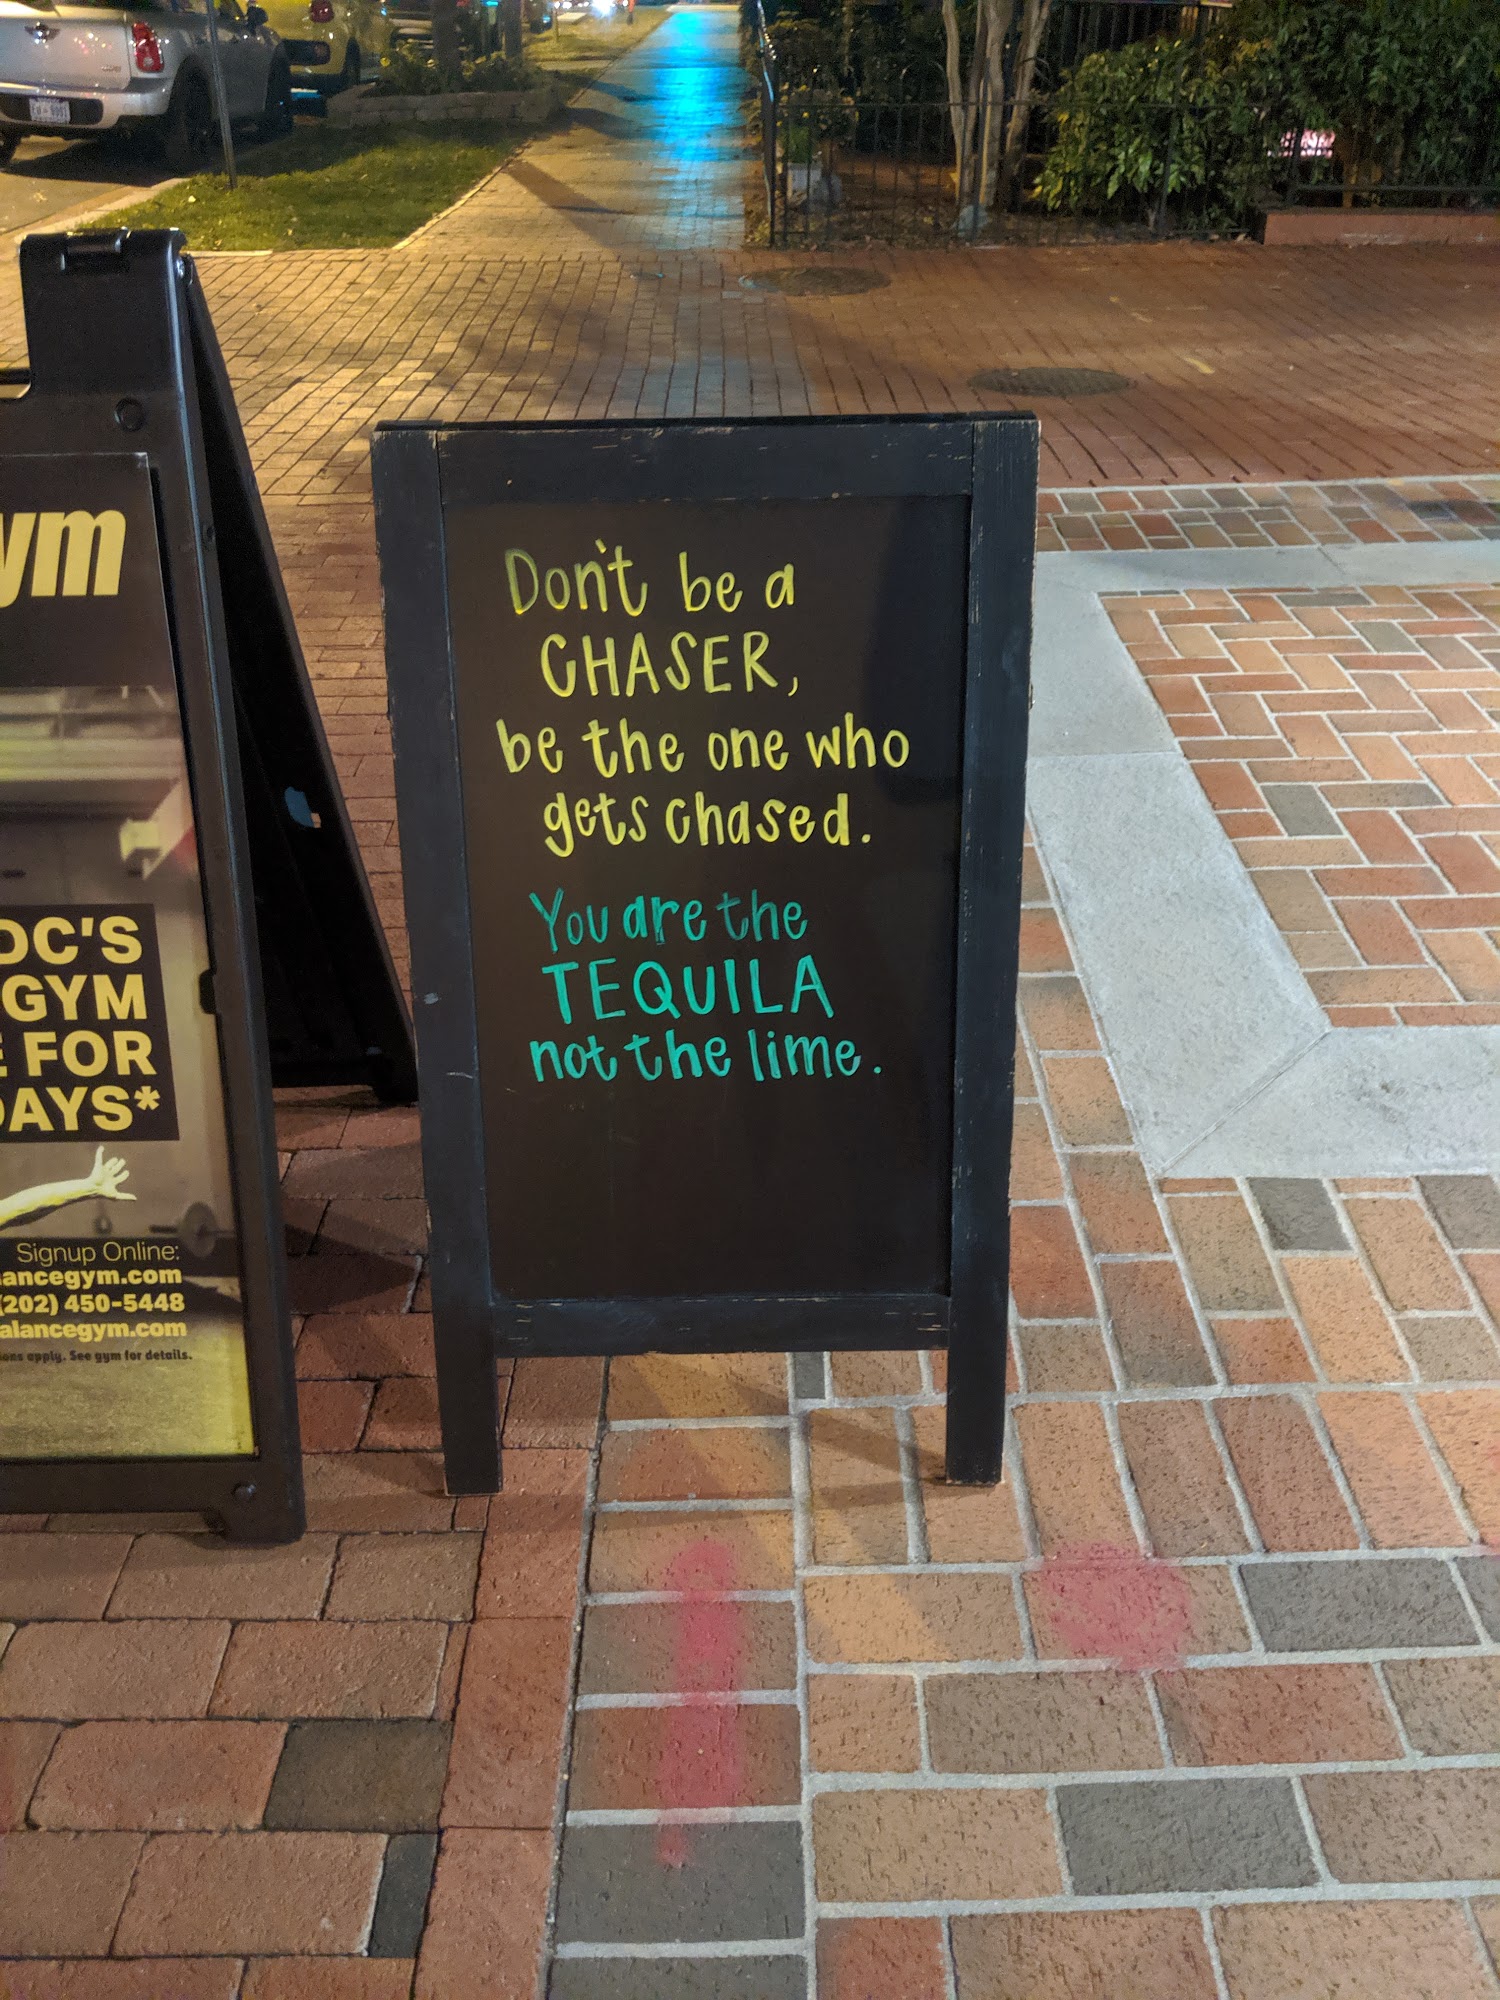 Don't be a
CHASER,
be the one who
gets chased.
You are the
TEQUILA
not the lime.
DC'S
GYM
FOR
Signup Online:
(202) 450-5448
apply. See gym for details.